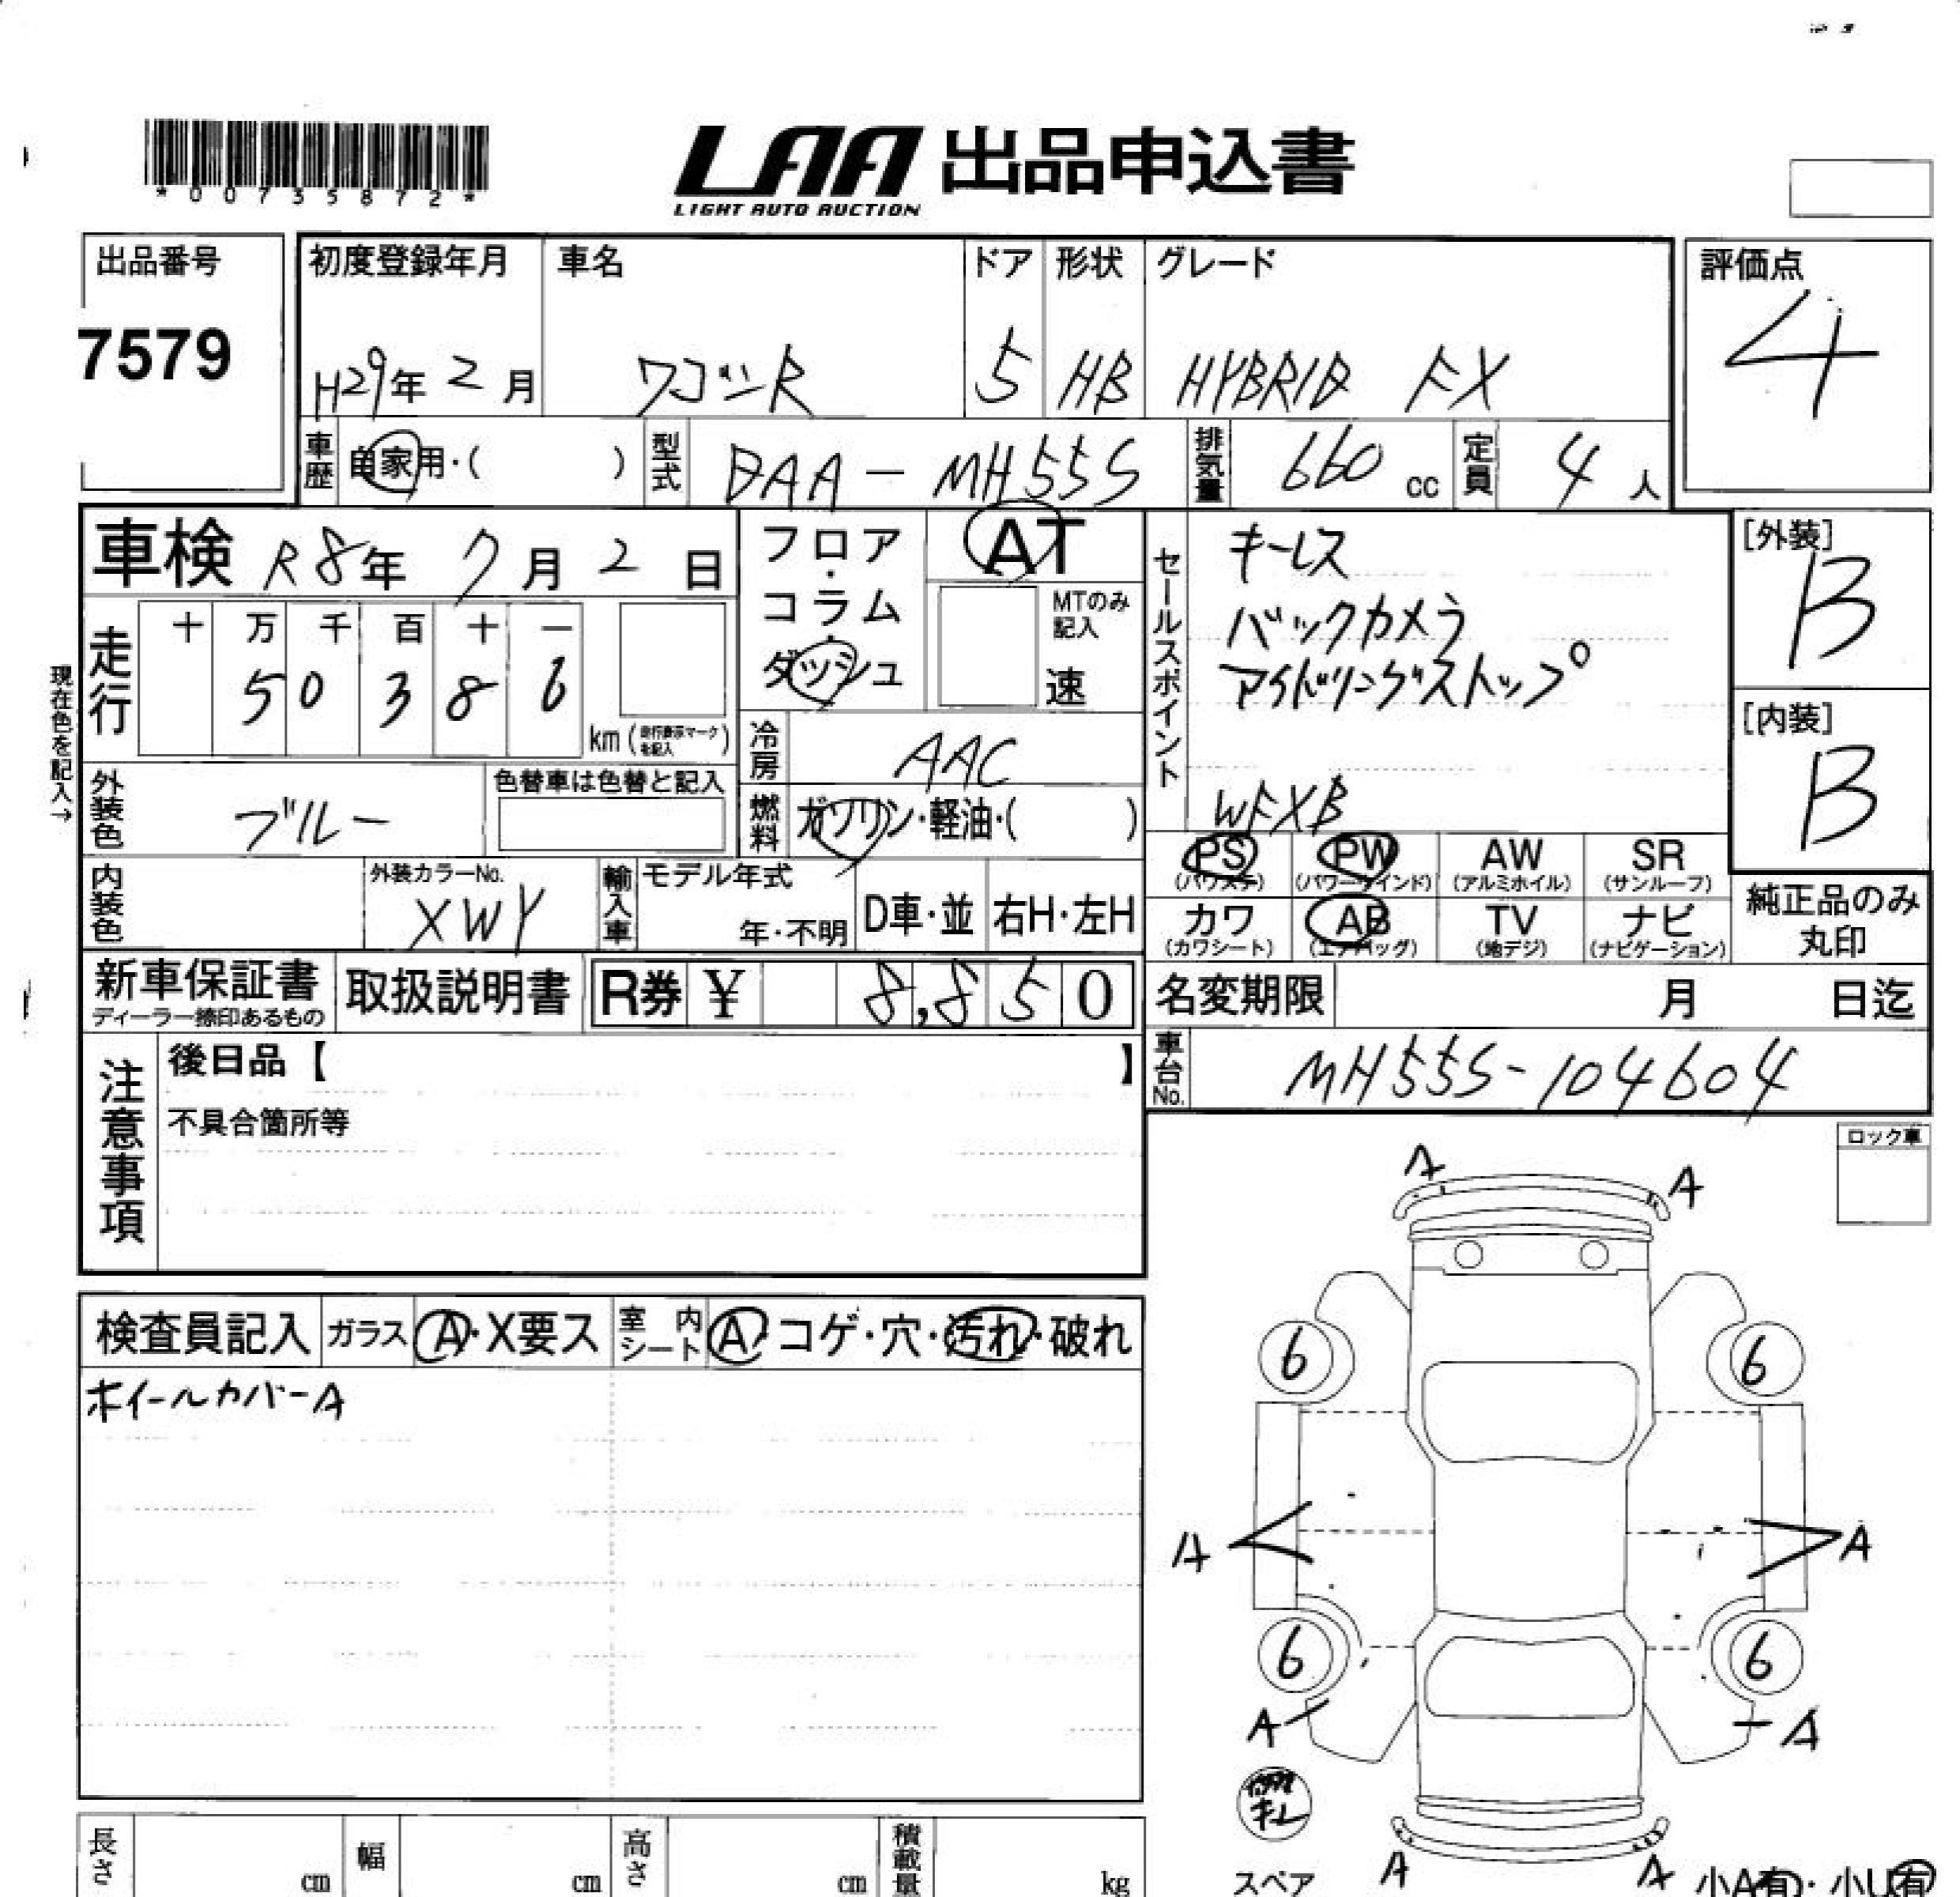 *00735872*
LAA 出品申込書
LIGHT AUTO AUCTION
出品番号
7579
初度登録年月
H29年 2月
車名
ワゴンR
ドア
5
形状
HB
グレード
HYBRID FX
評価点
4
車歴 自家用・( )
型式 DAA-MH55S
排気量 660 cc
定員 4 人
車検 R8年 7月 2日
走行
十 万 千 百 十 一
5 0 3 8 6
km (走行表示マークを記入)
現在色を記入→
フロア・コラム・ダッシュ
AT
MTのみ記入
速
冷房 AAC
燃料 ガソリン・軽油・( )
セールスポイント
キーレス
バックカメラ
アイドリングストップ
WFXB
[外装]
B
[内装]
B
外装色 ブルー
色替車は色替と記入
内装色
外装カラーNo.
XWY
輸入車
モデル年式
年・不明
D車・並
右H・左H
PS (パワステ)
PW (パワーウインド)
AW (アルミホイル)
SR (サンルーフ)
カワ (カワシート)
AB (エアバッグ)
TV (地デジ)
ナビ (ナビゲーション)
純正品のみ丸印
新車保証書
ディーラー捺印あるもの
取扱説明書
R券 ¥ 8,850
名変期限 月 日迄
車台No. MH55S-104604
注意事項
後日品【 】
不具合箇所等
ロック車
検査員記入
ガラス A・X要ス
室内シート A・コゲ・穴・汚れ・破れ
ホイールカバーA
A A
6 6
A A
6 6
A A
スペア
A A
小A有・小U有
長さ cm
幅 cm
高さ cm
積載量 kg